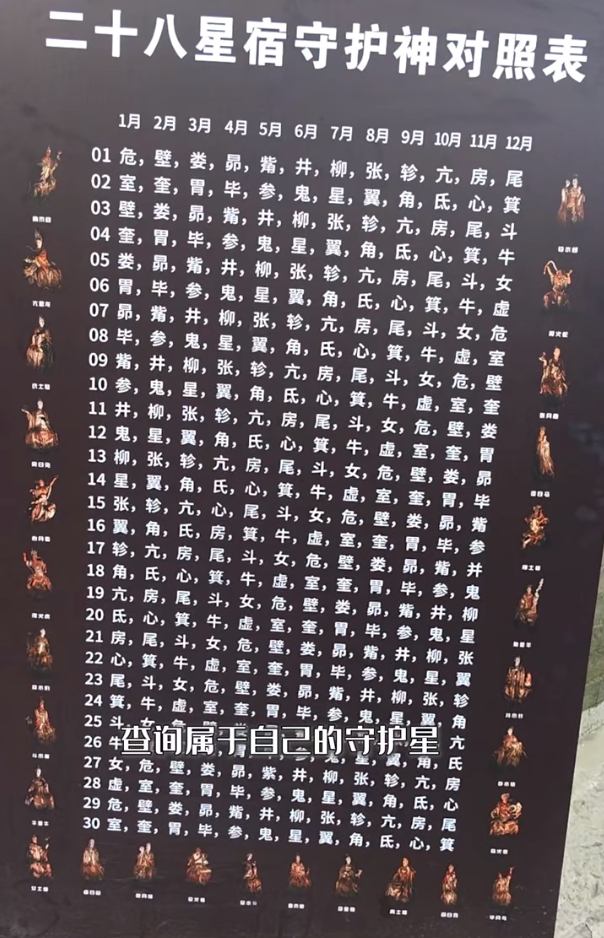 二十八星宿守护神对照表
1月 2月 3月 4月 5月 6月 7月 8月 9月 10月 11月 12月
01 危，壁，娄，昴，觜，井，柳，张，轸，亢，房，尾
02 室，奎，胃，毕，参，鬼，星，翼，角，氐，心，箕
03 壁，娄，昴，觜，井，柳，张，轸，亢，房，尾，斗
04 奎，胃，毕，参，鬼，星，翼，角，氐，心，箕，牛
05 娄，昴，觜，井，柳，张，轸，亢，房，尾，斗，女
06 胃，毕，参，鬼，星，翼，角，氐，心，箕，牛，虚
07 昴，觜，井，柳，张，轸，亢，房，尾，斗，女，危
08 毕，参，鬼，星，翼，角，氐，心，箕，牛，虚，室
09 觜，井，柳，张，轸，亢，房，尾，斗，女，危，壁
10 参，鬼，星，翼，角，氐，心，箕，牛，虚，室，奎
11 井，柳，张，轸，亢，房，尾，斗，女，危，壁，娄
12 鬼，星，翼，角，氐，心，箕，牛，虚，室，奎，胃
13 柳，张，轸，亢，房，尾，斗，女，危，壁，娄，昴
14 星，翼，角，氐，心，箕，牛，虚，室，奎，胃，毕
15 张，轸，亢，心，尾，斗，女，危，壁，娄，昴，觜
16 翼，角，氐，房，箕，牛，虚，室，奎，胃，毕，参
17 轸，亢，房，尾，斗，女，危，壁，娄，昴，觜，井
18 角，氐，心，箕，牛，虚，室，奎，胃，毕，参，鬼
19 亢，房，尾，斗，女，危，壁，娄，昴，觜，井，柳
20 氐，心，箕，牛，虚，室，奎，胃，毕，参，鬼，星
21 房，尾，斗，女，危，壁，娄，昴，觜，井，柳，张
22 心，箕，牛，虚，室，奎，胃，毕，参，鬼，星，翼
23 尾，斗，女，危，壁，娄，昴，觜，井，柳，张，轸
24 箕，牛，虚，室，奎，胃，毕，参，鬼，星，翼，角
25 斗，亢
查询属于自己的守护星
26 牛，氐
27 女，危，壁，娄，昴，紫，井，柳，张，轸，亢，房
28 虚，室，奎，胃，毕，参，鬼，星，翼，角，氐，心
29 危，壁，娄，昴，觜，井，柳，张，轸，亢，房，尾
30 室，奎，胃，毕，参，鬼，星，翼，角，氐，心，箕